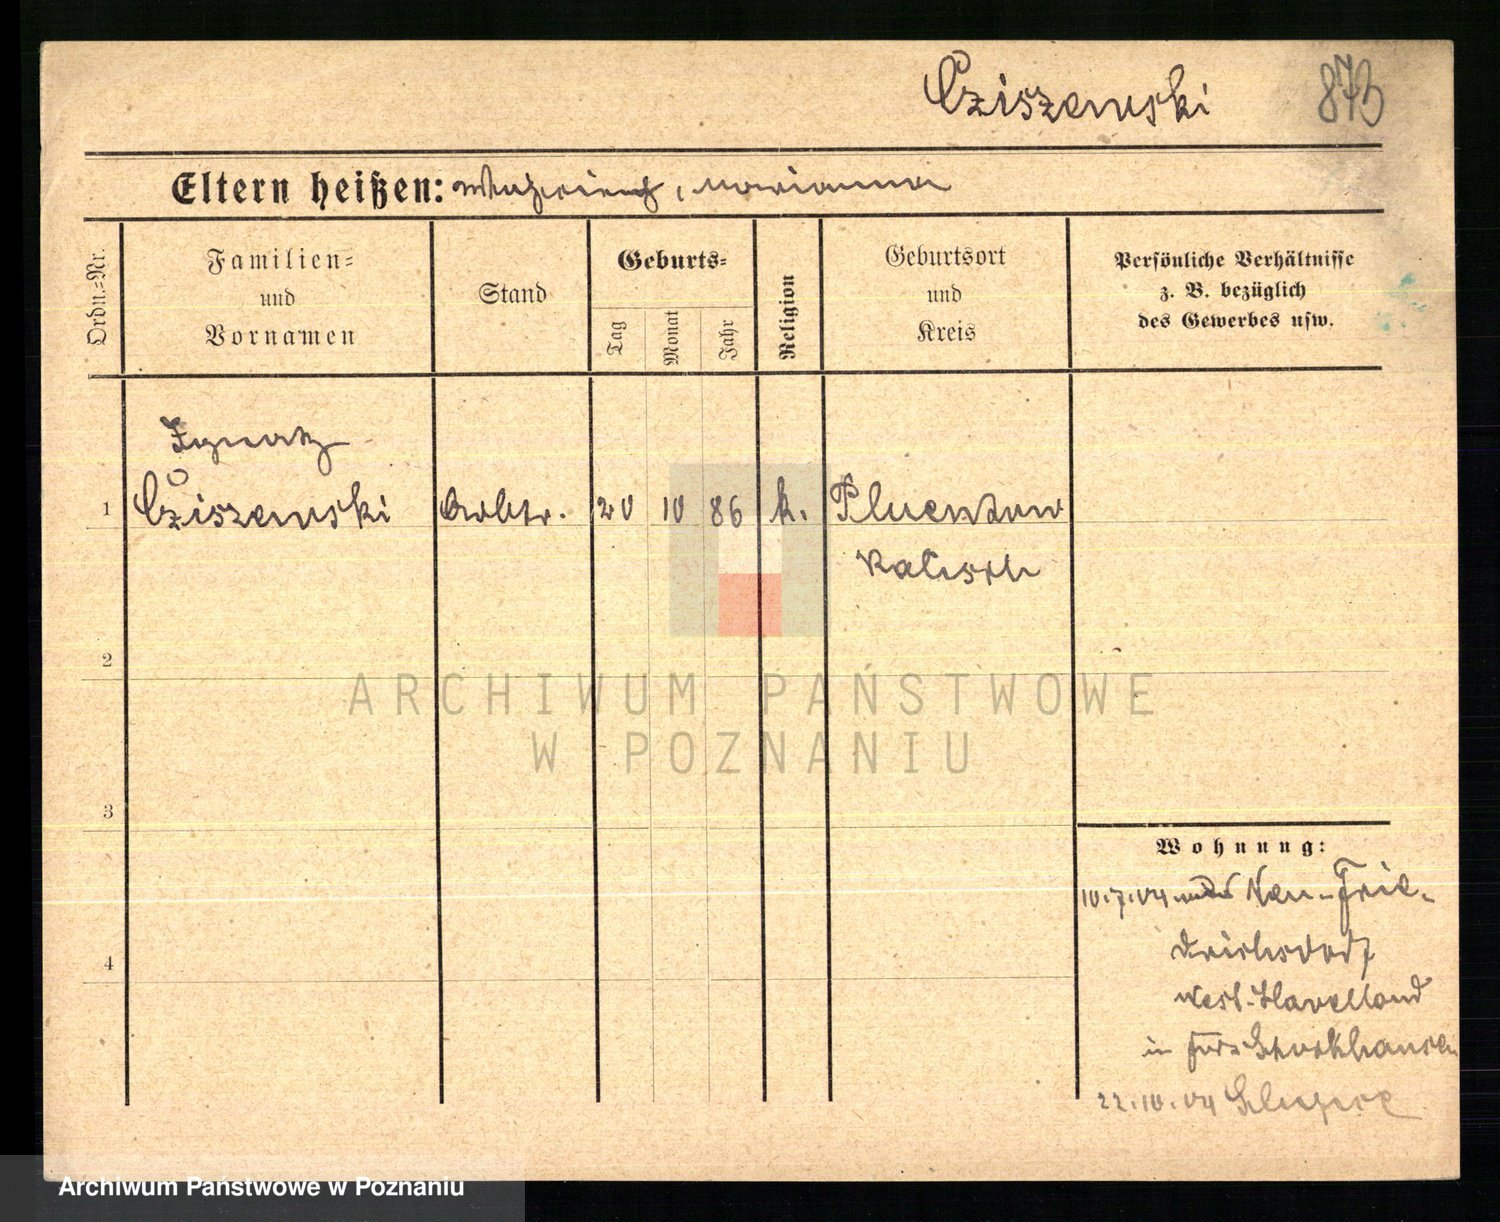 Cziszewski 873
Eltern heißen: , Marianna
Ordn.=Nr.
Familien=
und
Vornamen
Stand
Geburts=
Tag
Monat
Jahr
Religion
Geburtsort
und
Kreis
Persönliche Verhältnisse
z. B. bezüglich
des Gewerbes usw.
Ignatz
1 Cziszewski Arbtr. 20 10 86 k.
Kalisch
2
3
4
ARCHIWUM PAŃSTWOWE
W POZNANIU
Wohnung:
10.7.04 Neu-Frie-
drichsdorf
West-Havelland
in
22.10.04
Archiwum Państwowe w Poznaniu